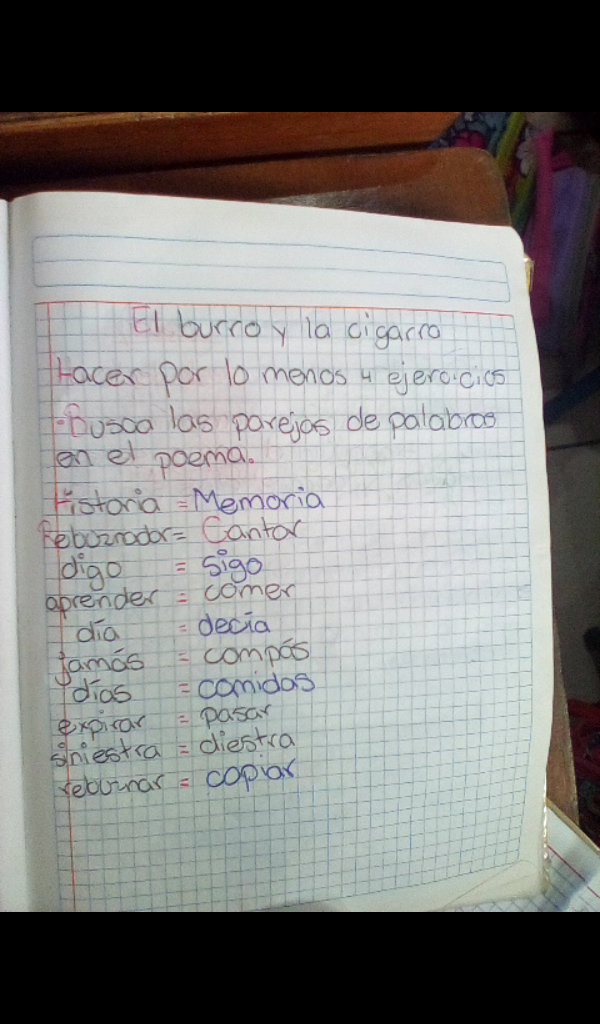 El burro y la cigarra
Hacer por lo menos 4 ejercicios
-Busca las parejas de palabras
en el poema.
Historia = Memoria
Rebuznador = Cantor
digo = sigo
aprender = comer
día = decía
jamás = compás
días = comidas
expirar = pasar
siniestra = diestra
rebuznar = copiar